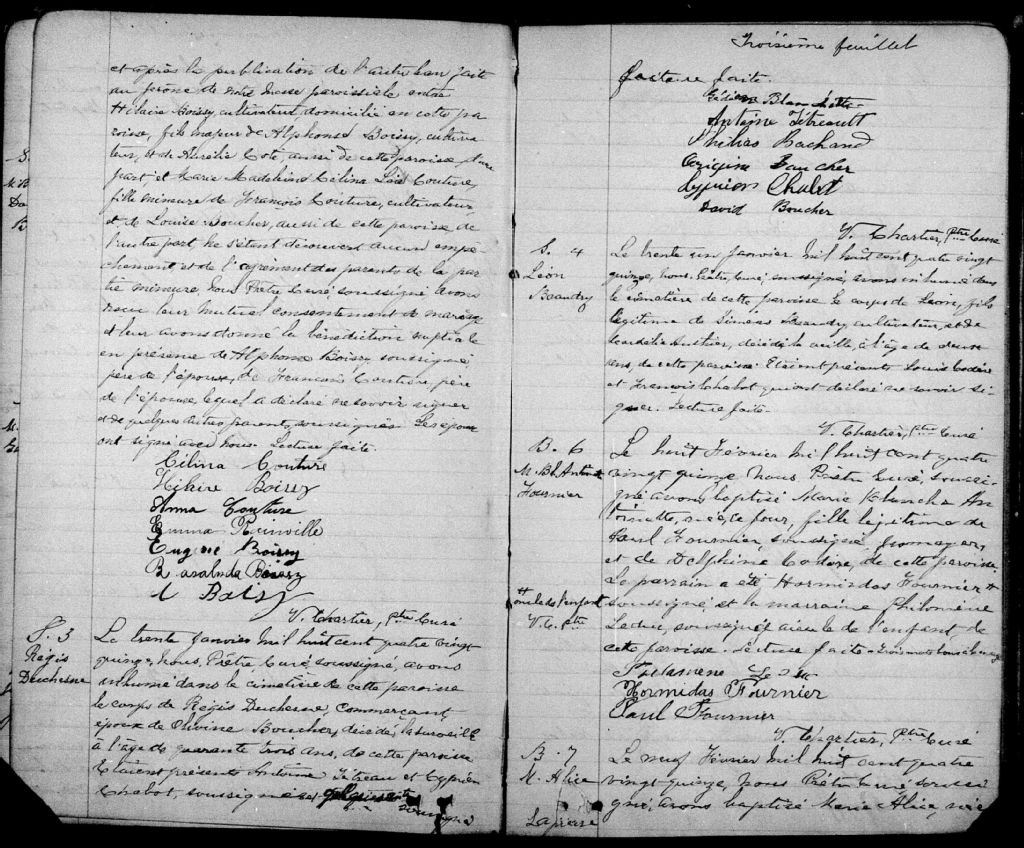 et après la publication de l'autre ban faite
au prône de notre messe paroissiale entre
Hilaire Boissy, cultivateur, domicilié en cette pa
roisse, fils majeur de Alphonse Boissy, cultiva
teur, et de Aurélie Coté, aussi de cette paroisse, d'une
part; et Marie Madeleine Célina Couture,
fille mineure de François Couture, cultivateur,
et de Louise Boucher, aussi de cette paroisse de
l'autre part, ne s'étant découvert aucun empê
chement, et de l'agrément des parents de la par
tie mineure, nous Prêtre Curé, soussigné avons
reçu leur mutuel consentement de mariage
et leur avons donné la bénédiction nuptiale
en présence de Alphonse Boissy, soussigné,
père de l'époux, de François Couture, père
de l'épouse lequel a déclaré ne savoir signer
et de quelques autres parents, soussignés. Les époux
ont signé avec nous. Lecture faite.
Célina Couture
Hilaire Boissy
Anna Couture
Emma Rainville
Eugène Boissy
Rosalinda Boissy
A Boissy
V. Chartier, Ptre Curé
S. 3
Régis
Duchesne
Le trente janvier mil huit cent quatre vingt
quinze, nous, Prêtre Curé soussigné, avons
inhumé dans le cimetière de cette paroisse
le corps de Régis Duchesne, commerçant,
époux de Olivine Boucher, décédé, la surveille
à l'âge de quarante trois ans, de cette paroisse
Etaient présents Antoine Tétreau et Cyprien
Chabot, soussignés
soussigné
Troisième feuillet
Lecture faite.
Gédéon Blanchette
Antoine Tétreault
Philias Bachand
Origène Boucher
Cyprien Chabot
David Boucher
V. Chartier, Ptre Curé
S. 4
Léon
Beaudry
Le trente un Janvier mil huit cent quatre vingt
quinze, nous, Prêtre, Curé, soussigné, avons inhumé dans
le cimetière de cette paroisse le corps de Léon, fils
légitime de Beaudry, cultivateur, et de
décédé la veille, à l'âge de
ans, de cette paroisse. Etaient présents Louis Codère
et François Chabot qui ont déclaré ne savoir si
gner. Lecture faite.
V. Chartier, Ptre Curé
B. 6
M. Bl. Antoinette
Fournier
Le huit Février mil huit cent quatre
vingt quinze nous Prêtre Curé, soussi
gné avons baptisé Marie Blanche An
toinette, née, ce jour, fille légitime de
Paul Fournier, soussigné, fromager,
et de Delphine Codère, de cette paroisse.
Le parrain a été Hormidas Fournier #
soussigné et la marraine Philomène
Leduc, soussignée aieule de l'enfant, de
cette paroisse. Lecture faite.
# oncle de l'enfant
V. C. Ptre
Philomène Leduc
Hormidas Fournier
Paul Fournier
V. Chartier, Ptre Curé
B. 7
M. Alice
Le neuf Février mil huit cent quatre
vingt quinze, nous Prêtre Curé soussi
gné, avons baptisé Marie Alice, née